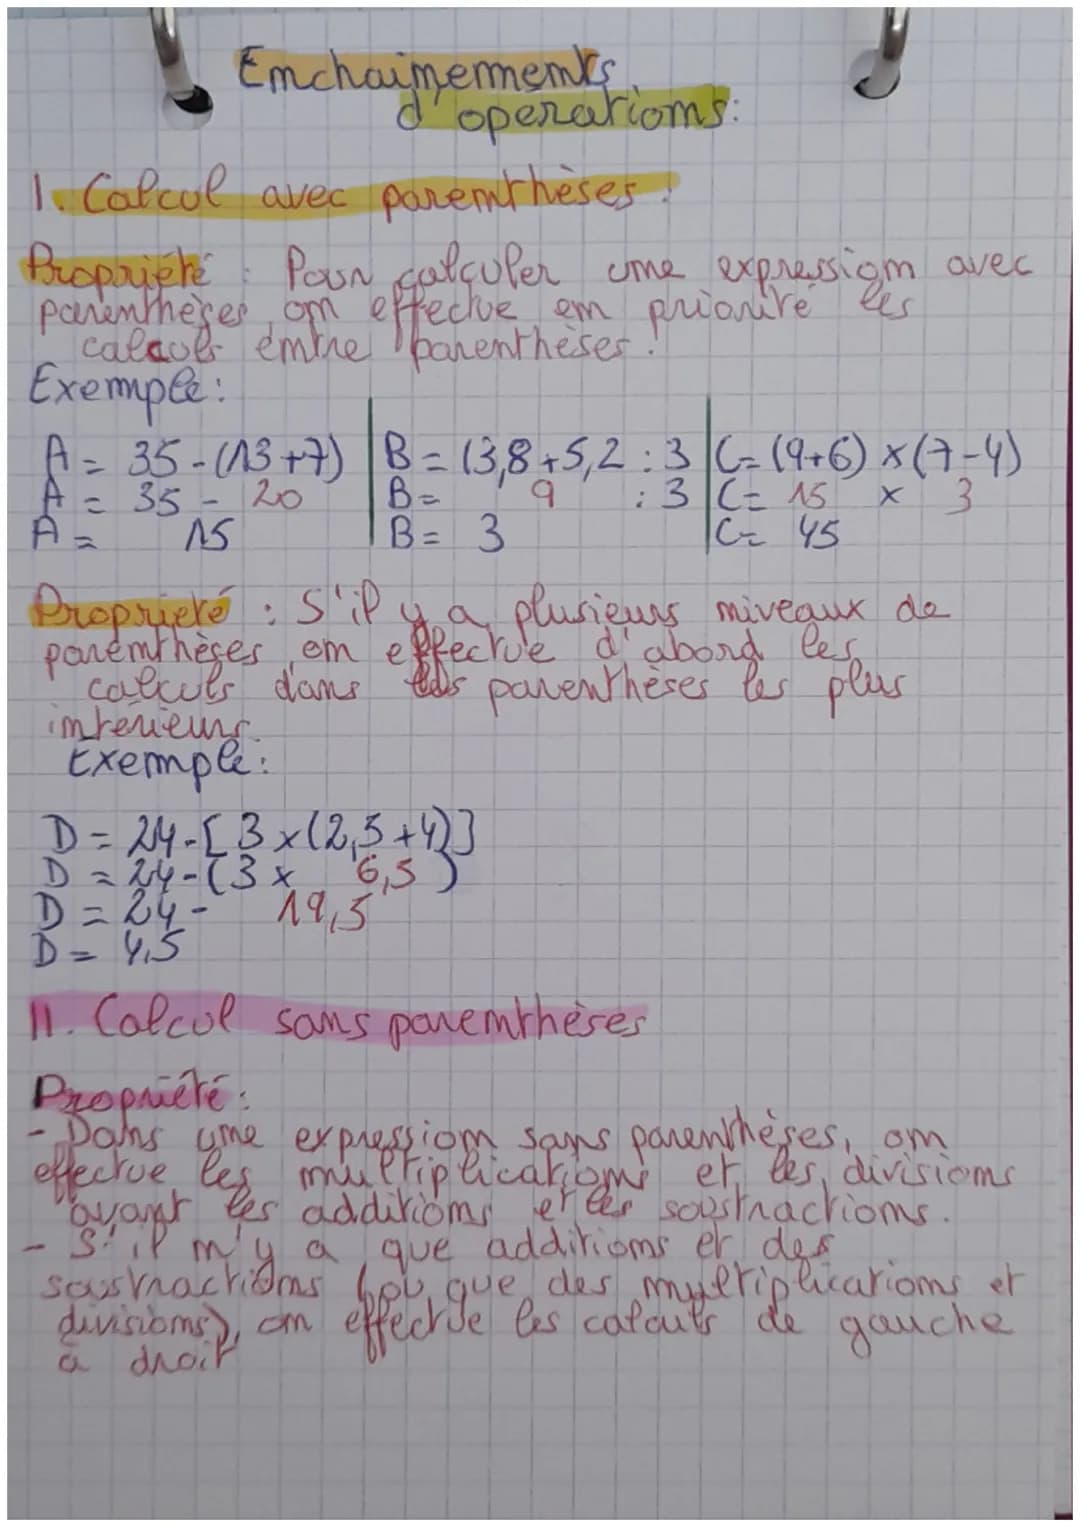 Enchainements
d'operations:
I. Calcul avec parenthèses:
Propriété : Pour calculer une expression avec
parenthèses, on effectue en priorité les
calculs entre parenthèses.
Exemple:
A = 35 - (13+7) | B = (3,8 + 5,2 : 3 | C = (9+6) × (7-4)
A = 35 - 20 | B = 9 : 3 | C = 15 × 3
A = 15 | B = 3 | C = 45
Propriété : S'il y a plusieurs niveaux de
parenthèses, on effectue d'abord les
calculs dans les parenthèses les plus
interieurs.
Exemple:
D = 24 - [3 × (2,5 + 4)]
D = 24 - (3 × 6,5)
D = 24 - 19,5
D = 4,5
II. Calcul sans parenthèses
Propriété:
- Dans une expression sans parenthèses, on
effectue les multiplications et les divisions
avant les additions et les soustractions.
- S'il n'y a que additions et des
soustractions (ou que des multiplications et
divisions), on effectue les calculs de gauche
à droit